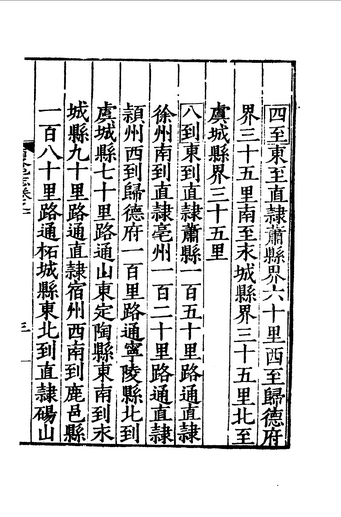 四至東至直隷蕭縣界六十里西至歸德府
界三十五里南至末城縣界三十五里北至
虞城縣界三十五里
八到東到直隷蕭縣一百五十里路通直隷
徐州南到直隷亳州一百二十里路通直隷
頴州西到歸德府一百里路通寧陵縣北到
虞城縣七十里路通山東定陶縣東南到末
城縣九十里路通直隷宿州西南到鹿邑縣
一百八十里路通柘城縣東北到直隷碭山
三